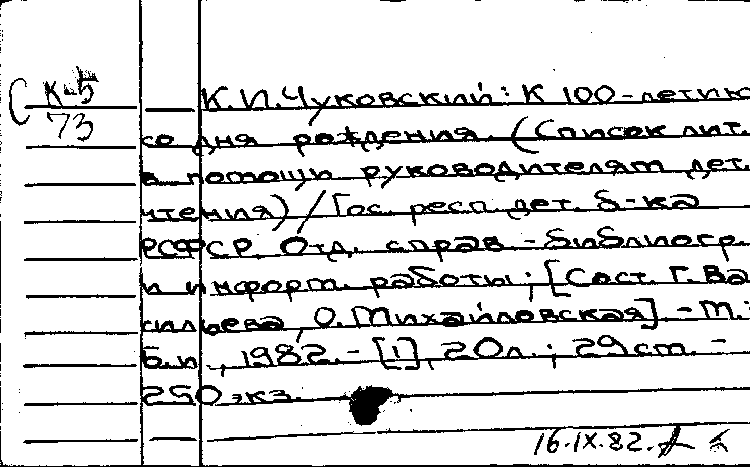 К-5
73
К.И.Чуковский: К 100-летию
со дня рождения. (Список лит.
в помощь руководителям дет.
чтения) / Гос. респ. дет. б-ка
РСФСР. Отд. справ.-библиогр.
и информ. работы; [Сост. Г. Ва
сильева, О. Михайловская]. - М.:
Б.и., 1982. - [1], 20л.; 29см. -
250 экз.
16.IX.82.